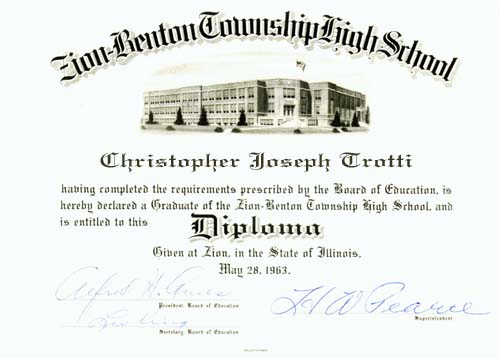 Zion-Benton Township High School
Christopher Joseph Trotti
having completed the requirements prescribed by the Board of Education, is
hereby declared a Graduate of the Zion-Benton Township High School, and
is entitled to this Diploma
Given at Zion, in the State of Illinois,
May 28, 1963.
Alfred H.
President, Board of Education
H W Pearce
Superintendent
Secretary, Board of Education